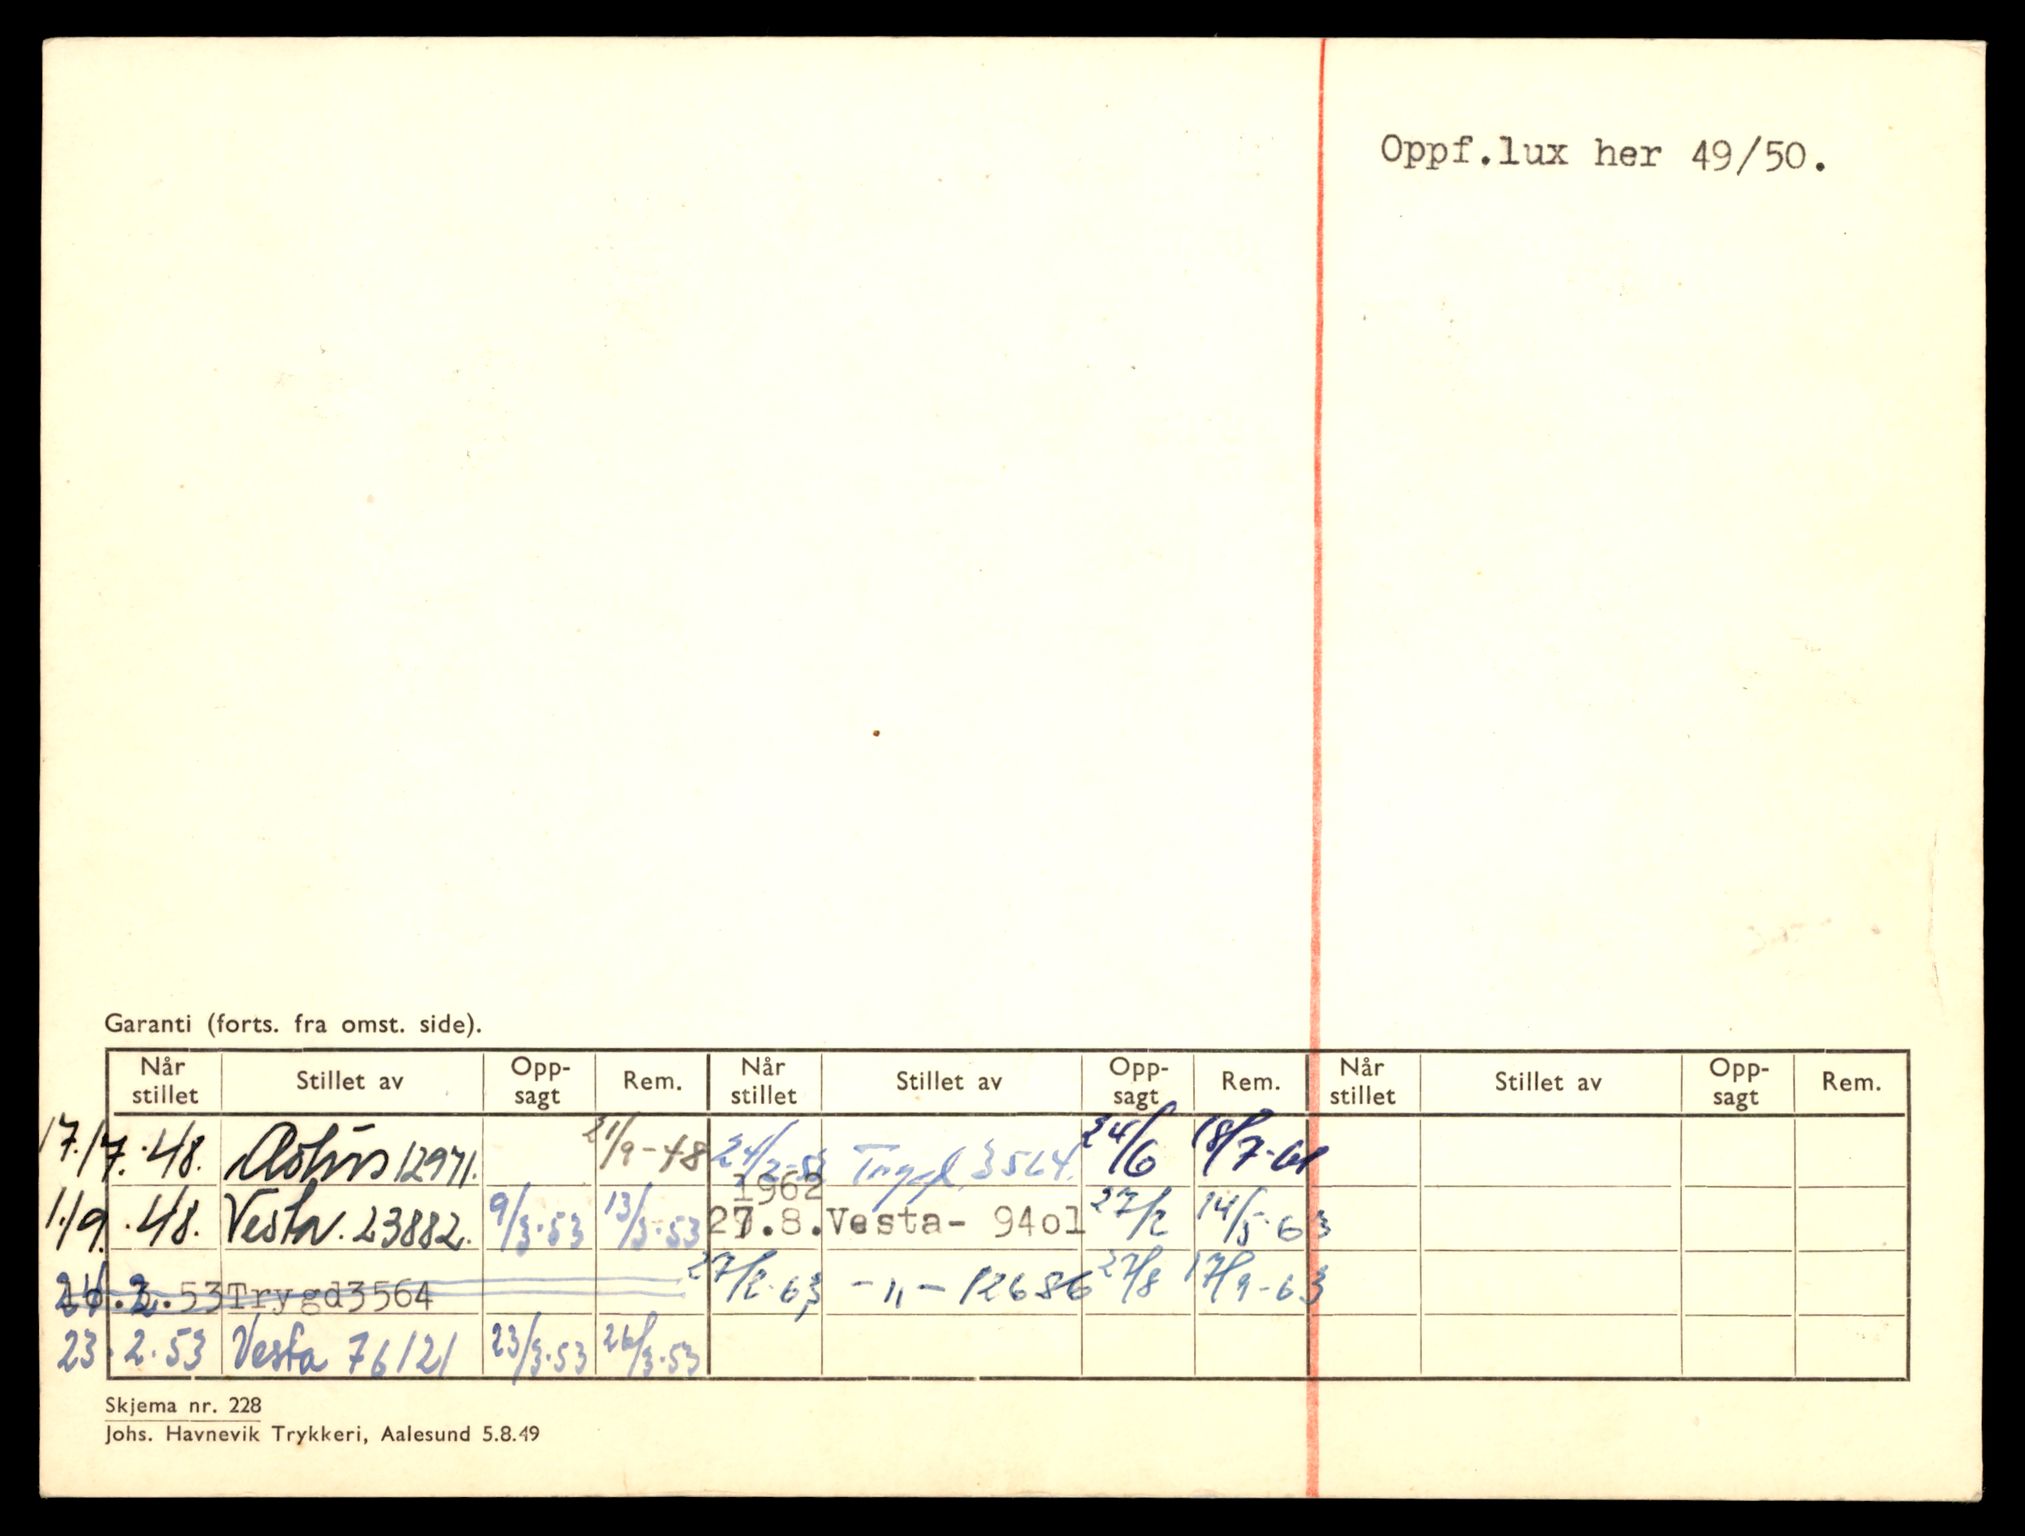 Oppf.lux her 49/50.
Garanti (forts. fra omst. side).
Når stillet Stillet av Opp-sagt Rem. Når stillet Stillet av Opp-sagt Rem. Når stillet Stillet av Opp-sagt Rem.
17./7.48. 12971. 21/9-48 Trygd 3564. 24/6 18/7-61
1./9.48. Vesta. 23882. 9/3.53 13/3.53 1962 27.8. Vesta- 94ol 27/2 14/5-63
.2.53 Trygd3564 27/2-63 -"- 12686 27/8 17/9-63
23.2.53 Vesta 76121 23/3.53 26/3.53
Skjema nr. 228
Johs. Havnevik Trykkeri, Aalesund 5.8.49